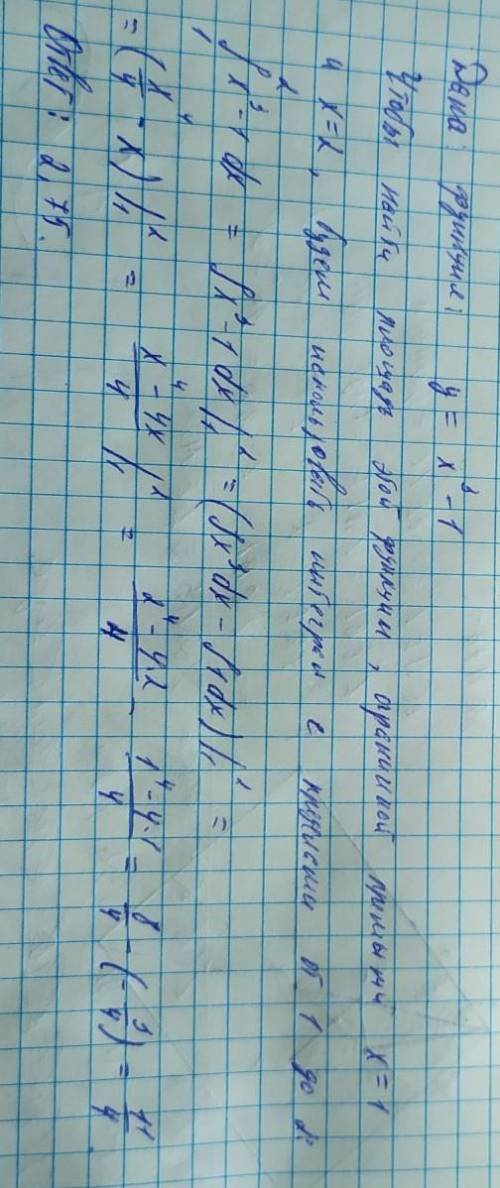 Дана функция: y = x³ - 1
Чтобы найти площадь этой функции, ограниченой прямыми x = 1
и x = 2, будем использовать интеграл с пределами от 1 до 2
∫₁² x³ - 1 dx = ∫x³ - 1 dx |₁² = (∫x³dx - ∫1dx)|₁² =
= (x⁴/4 - x)|₁² = (x⁴ - 4x)/4 |₁² = (2⁴ - 4·2)/4 - (1⁴ - 4·1)/4 = 8/4 - (-3/4) = 11/4
Ответ: 2,75.